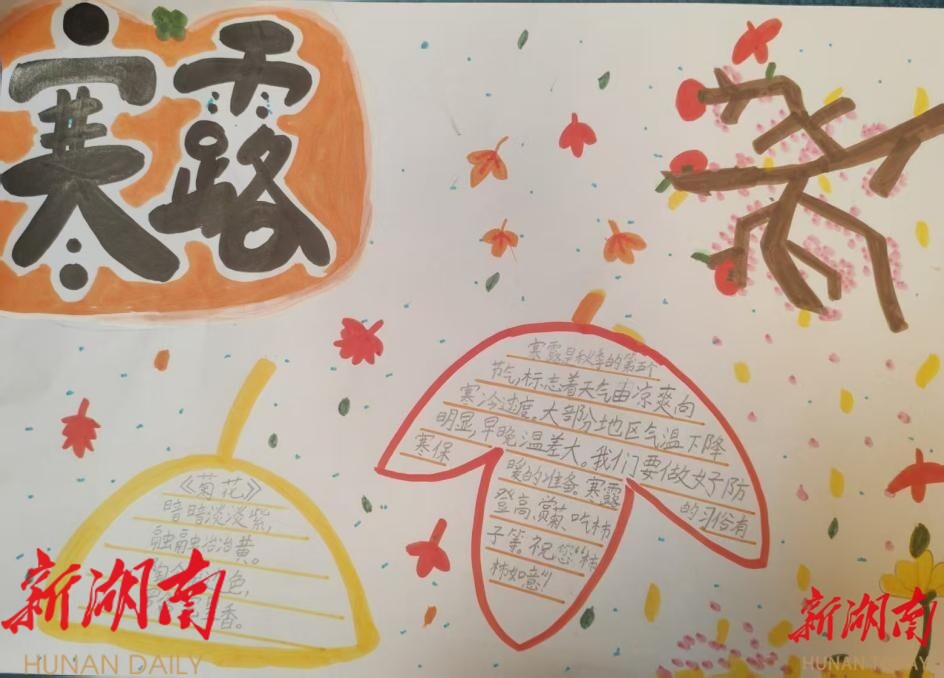 寒露
寒露是秋季的第五个
节气,标志着天气由凉爽向
寒冷过度。大部分地区气温下降
明显,早晚温差大。我们要做好防
寒保
暖的准备。寒露
的习俗有
登高、赏菊、吃柿
子等。祝您“柿
柿如意”!
《菊花》
暗暗淡淡紫,
融融冶冶黄。
色,
香。
新湖南
HUNAN DAILY
新湖南
HUNAN TODAY